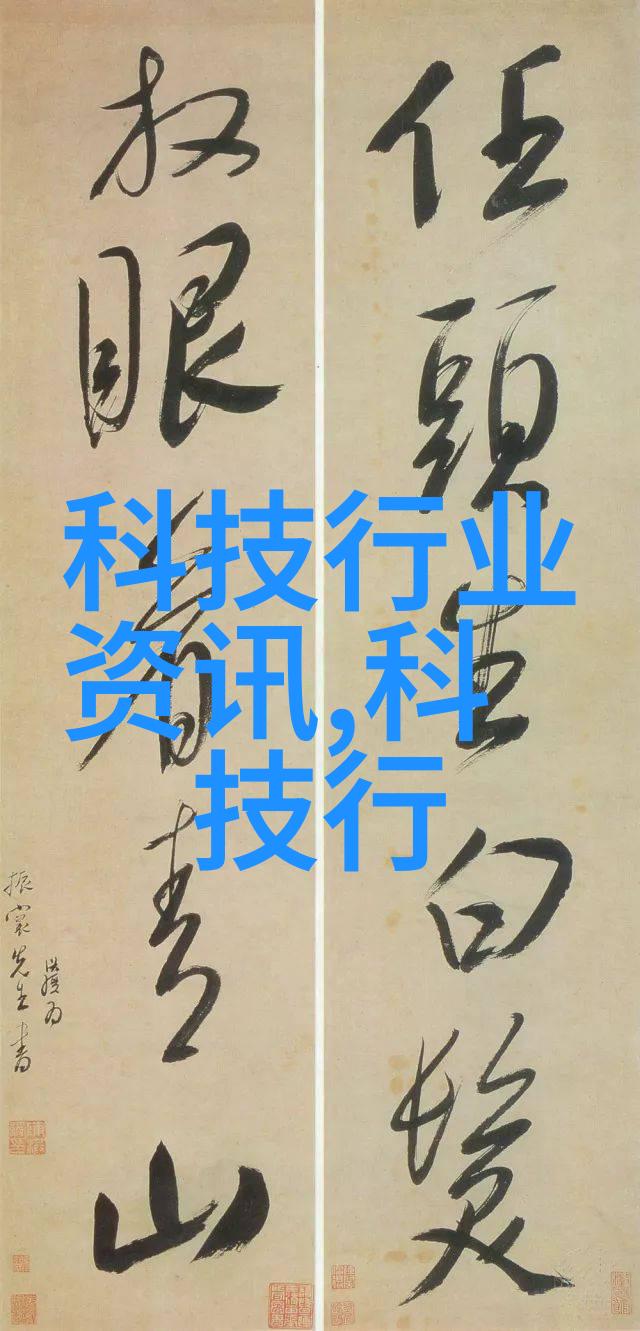 任頭生白髮
放眼看青山
振裳先生書
科技行业
资讯,科
技行